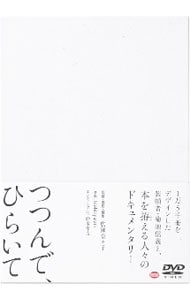 1万5千冊を
デザインした
装幀者・菊地信義と、
本を拵える人々の
ドキュメンタリー。
つつんで、
ひらいて
DVD